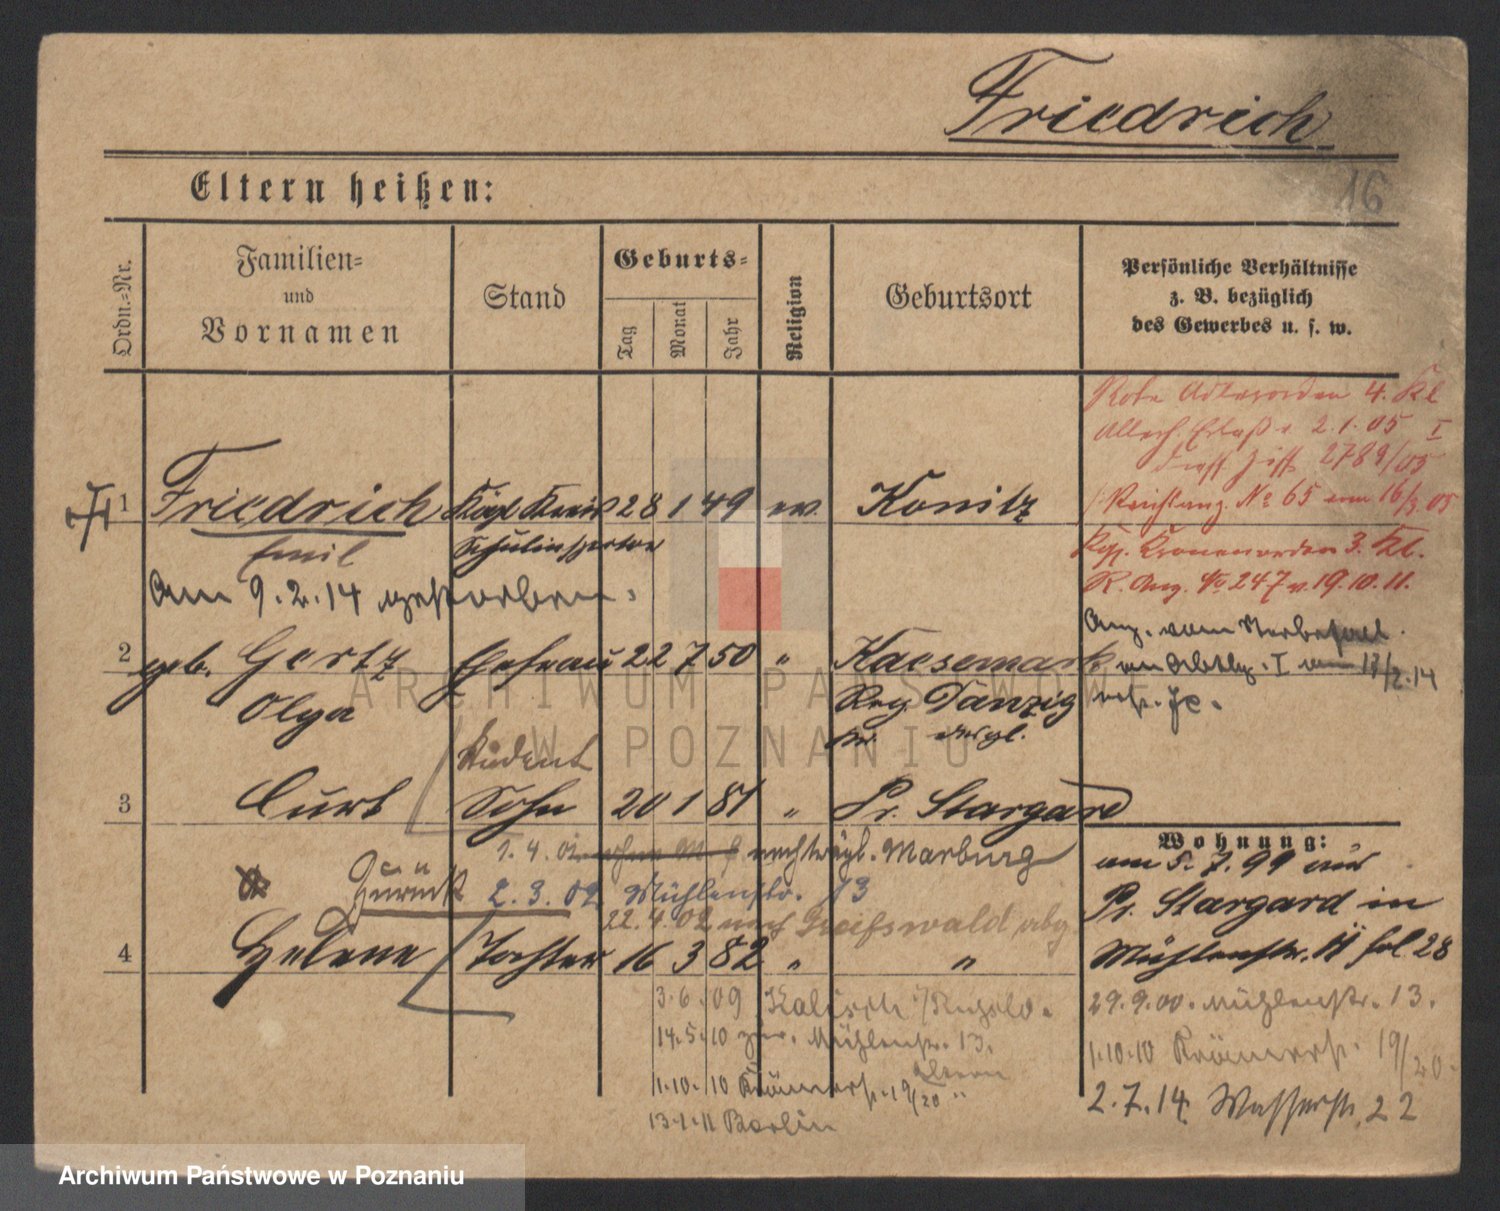 Friedrich
16
Eltern heißen:
Ordn.=Nr.
Familien=
und
Vornamen
Stand
Geburts=
Tag
Monat
Jahr
Religion
Geburtsort
Persönliche Verhältnisse
z. B. bezüglich
des Gewerbes u. s. w.
Rote Adlerorden 4. Kl
Allerh. Erlaß v. 2.1.05 I
2789/05
1 Friedrich Kögl Kreis 28 1 49 ev. Konitz
Reichsanz. No 65 vom 16/3 05
Emil
Schulinspektor
Kgl. Kronenorden 3. Kl.
R. Anz. No 247 v. 19.10.11.
Am 9.2.14 gestorben.
Anz. vom Sterbefall
2 geb. Gertz Ehefrau 22 7 50 " Kaesemark
an Abtlg. I am 17/2.14
Olga
Reg. Danzig
Student
3 Curt Sohn 20 1 81 " Pr. Stargard
Wohnung:
1.4.01 nach Marburg
am 5.7.99 aus
Zurück 2.3.02 Mühlenstr. 13
Pr. Stargard in
22.4.02 nach Greifswald abg
4 Helene Tochter 16 3 82 " "
Mühlenstr. 11 fol 28
3.6.09 Kalisch /Rußld.
29.9.00. Mühlenstr. 13.
14.5.10 zur. Mühlenstr. 13.
1.10.10 Krämerstr. 19/20.
Eltern
1.10.10 Krämerstr. 19/20 "
2.7.14 Wasserstr. 22
13.1.11 Berlin
ARCHIWUM PAŃSTWOWE
W POZNANIU
Archiwum Państwowe w Poznaniu